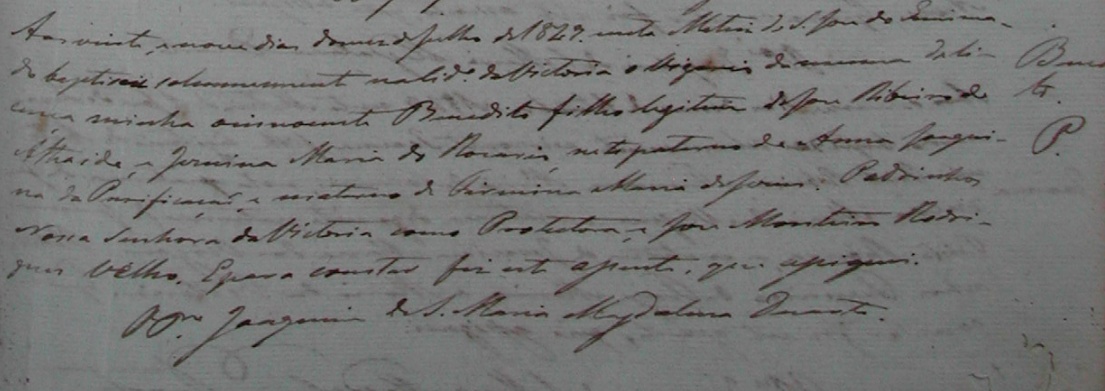 Aos vinte, e nove dias do mes de Julho de 1829. nesta Matriz de S. Jose do
do baptizei solemnemente na de Victoria o Vigario da mesma de li-
cença minha o innocente Benedito filho legitimo de Jose Ribeiro de
Athaide, e Maria do Rosario, neto paterno de Anna Joaqui-
na da Purificação, e materno de Firmina Maria de Jesus. Padrinhos
Nossa Senhora da Victoria como Protectora, e Jose Monteiro Rodri-
gues Velho. E para constar fiz este assento, que assignei.
Joaquim de S. Maria Magdalena Duarte.
Bene
to.
P.